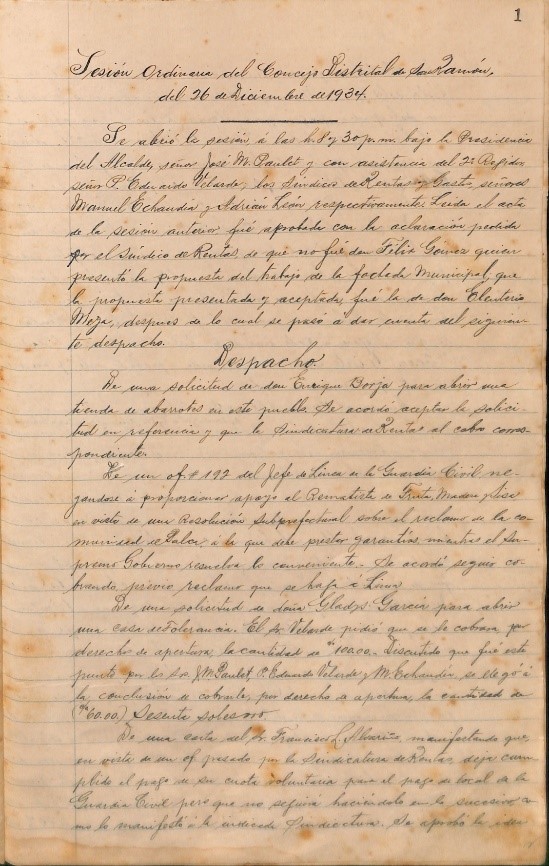 1
Sesión Ordinaria del Concejo Distrital de San Ramón,
del 26 de Diciembre de 1934.
Se abrió la sesión á las h. 8 y 30 p.m. bajo la Presidencia
del Alcalde, señor José M. Paulet y con asistencia del 2º Regidor
señor P. Eduardo Velarde, los Síndicos de Rentas y Gasto, señores
Manuel Echandía y Adrián León respectivamente. Leída el acta
de la sesión anterior fué aprobada con la aclaración pedida
por el Síndico de Rentas, de que no fué don Félix Gomez quien
presentó la propuesta del trabajo de la fachada Municipal, que
la propuesta presentada y aceptada, fué la de don Eleuterio
Meza, despues de lo cual se pasó a dar cuenta del siguien-
te despacho.
Despacho.
De una solicitud de don Enrique Borja para abrir una
tienda de abarrotes en este pueblo. Se acordó aceptar la solici-
tud en referencia y que la Sindicatura de Rentas al cobro corres-
pondiente.
De un of. # 192 del Jefe de Línea de la Guardia Civil ne-
gandose á proporcionar apoyo al Rematista de Fruta, Madera y
en vista de una Resolución Subprefectural sobre el reclamo de la co-
munidad de á la que debe prestar garantías mientras el Su-
premo Gobierno resuelva lo conveniente. Se acordó seguir co-
brando, previo reclamo que se haga á Lima
De una solicitud de doña Gladys García para abrir
una casa de Tolerancia. El Sr. Velarde pidió que se le cobrara por
derecho de apertura, la cantidad de 100.00. Discutido que fué este
punto por los Srs. J.M. Paulet, P. Eduardo Velarde y M. Echandía, se llegó á
la conclusión de cobrarle, por derecho de apertura, la cantidad de
60.00.) Sesenta soles oro.
De una carta del Sr. Francisco L. Alvariño, manifestando que,
en vista de un of. pasado por la Sindicatura de Rentas, deja cum-
plido el pago de su cuota voluntaria para el pago de local de la
Guardia Civil pero que no seguirá haciéndolo en lo sucesivo co-
mo lo manifestó á la indicada Sindicatura. Se aprobó la